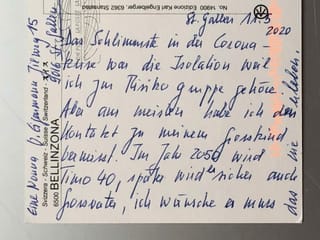 St. Gallen 11.5
2020
Das Schlimmste in der Corona-
krise war die Isolation weil
ich zur Risiko gruppe gehöre.
Aber am meisten habe ich den
Kontakt zu meinem Grosskind
vermisst. Im Jahr 2050 wird
Timo 40, später wird er sicher auch
Grossvater, ich wünsche er muss
das nie erleben.
Eine Nonna
15
St. Gallen
No. 14800 Editions Karl Engelberger, 6362 Stansstad
Svizzera - Schweiz - Suisse - Switzerland
6500 BELLINZONA